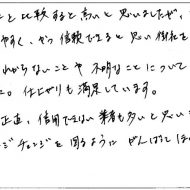 と比較すると高いと思いましたが、
やすく、かつ信頼できると思い御社を
わからないことや不明なことについて
た。仕上がりも満足しています。
正直、信用できない業者も多いと思い
ジチェンジを図るように がんばって ほ